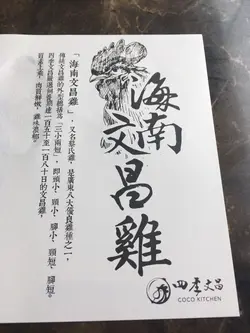 海南
文昌雞
「海南文昌雞」，又名蔡氏雞，是廣東八大優良雞種之一，
傳統文昌雞的外型總括為「三小兩短」，即頭小、頸小、腳小、頸短、腳短。
四季文昌嚴選飼養期達一百五十至一百八十日的文昌雞，
四季文昌
COCO KITCHEN